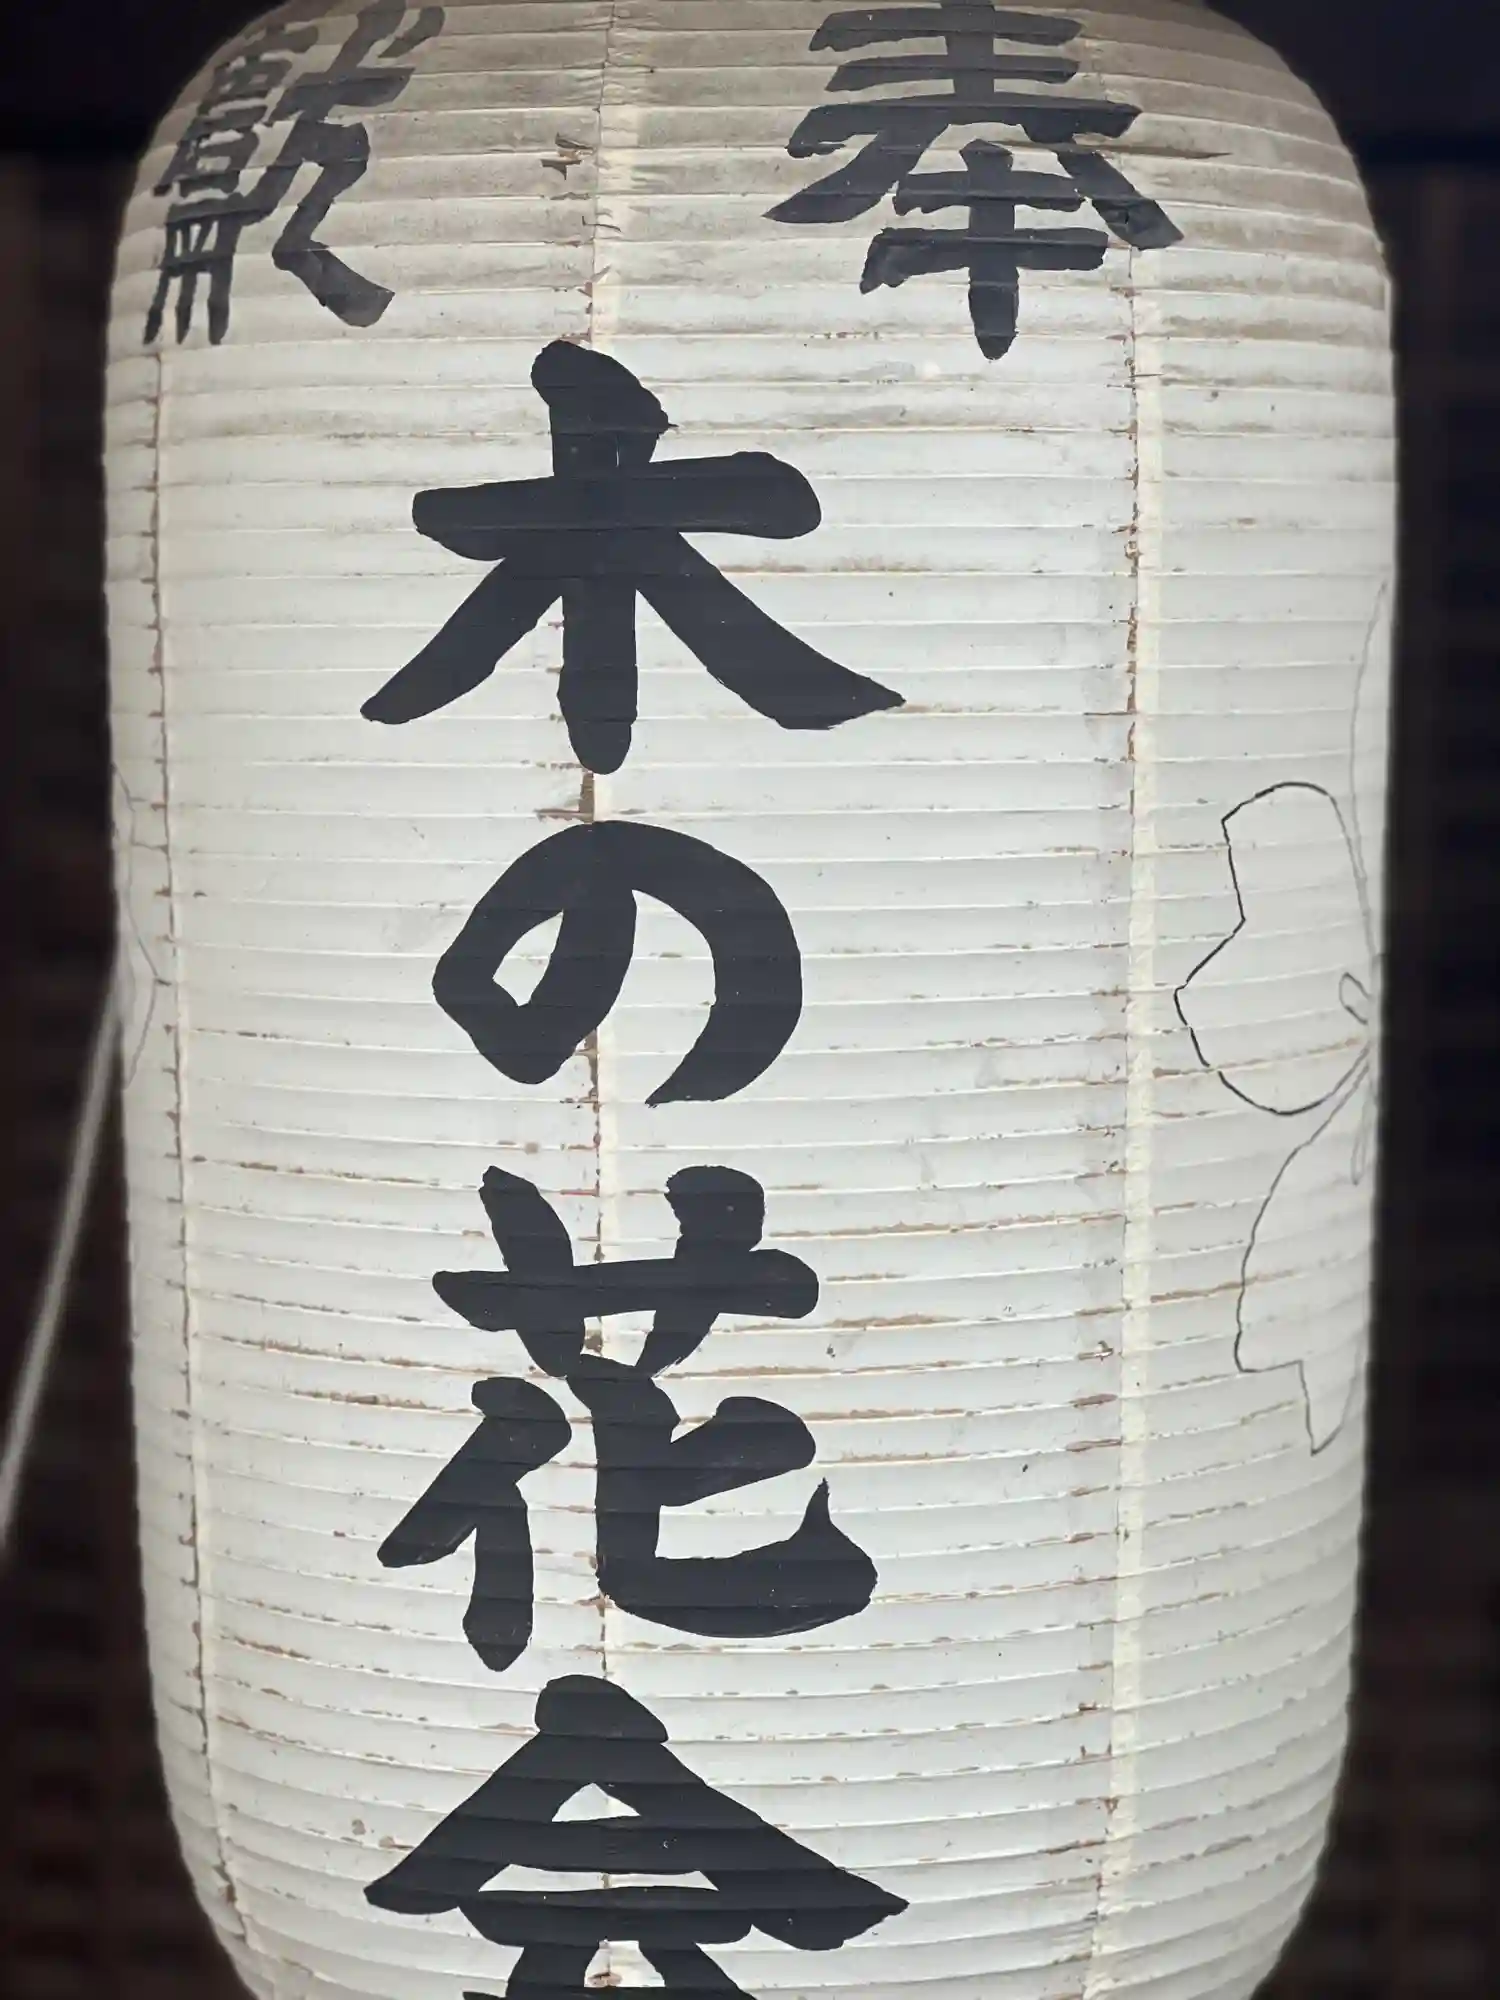 奉獻
木の花会